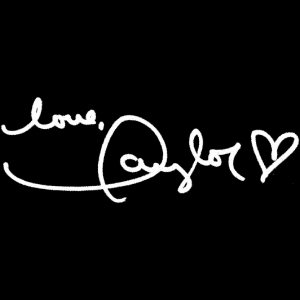 love,
Taylor ♡